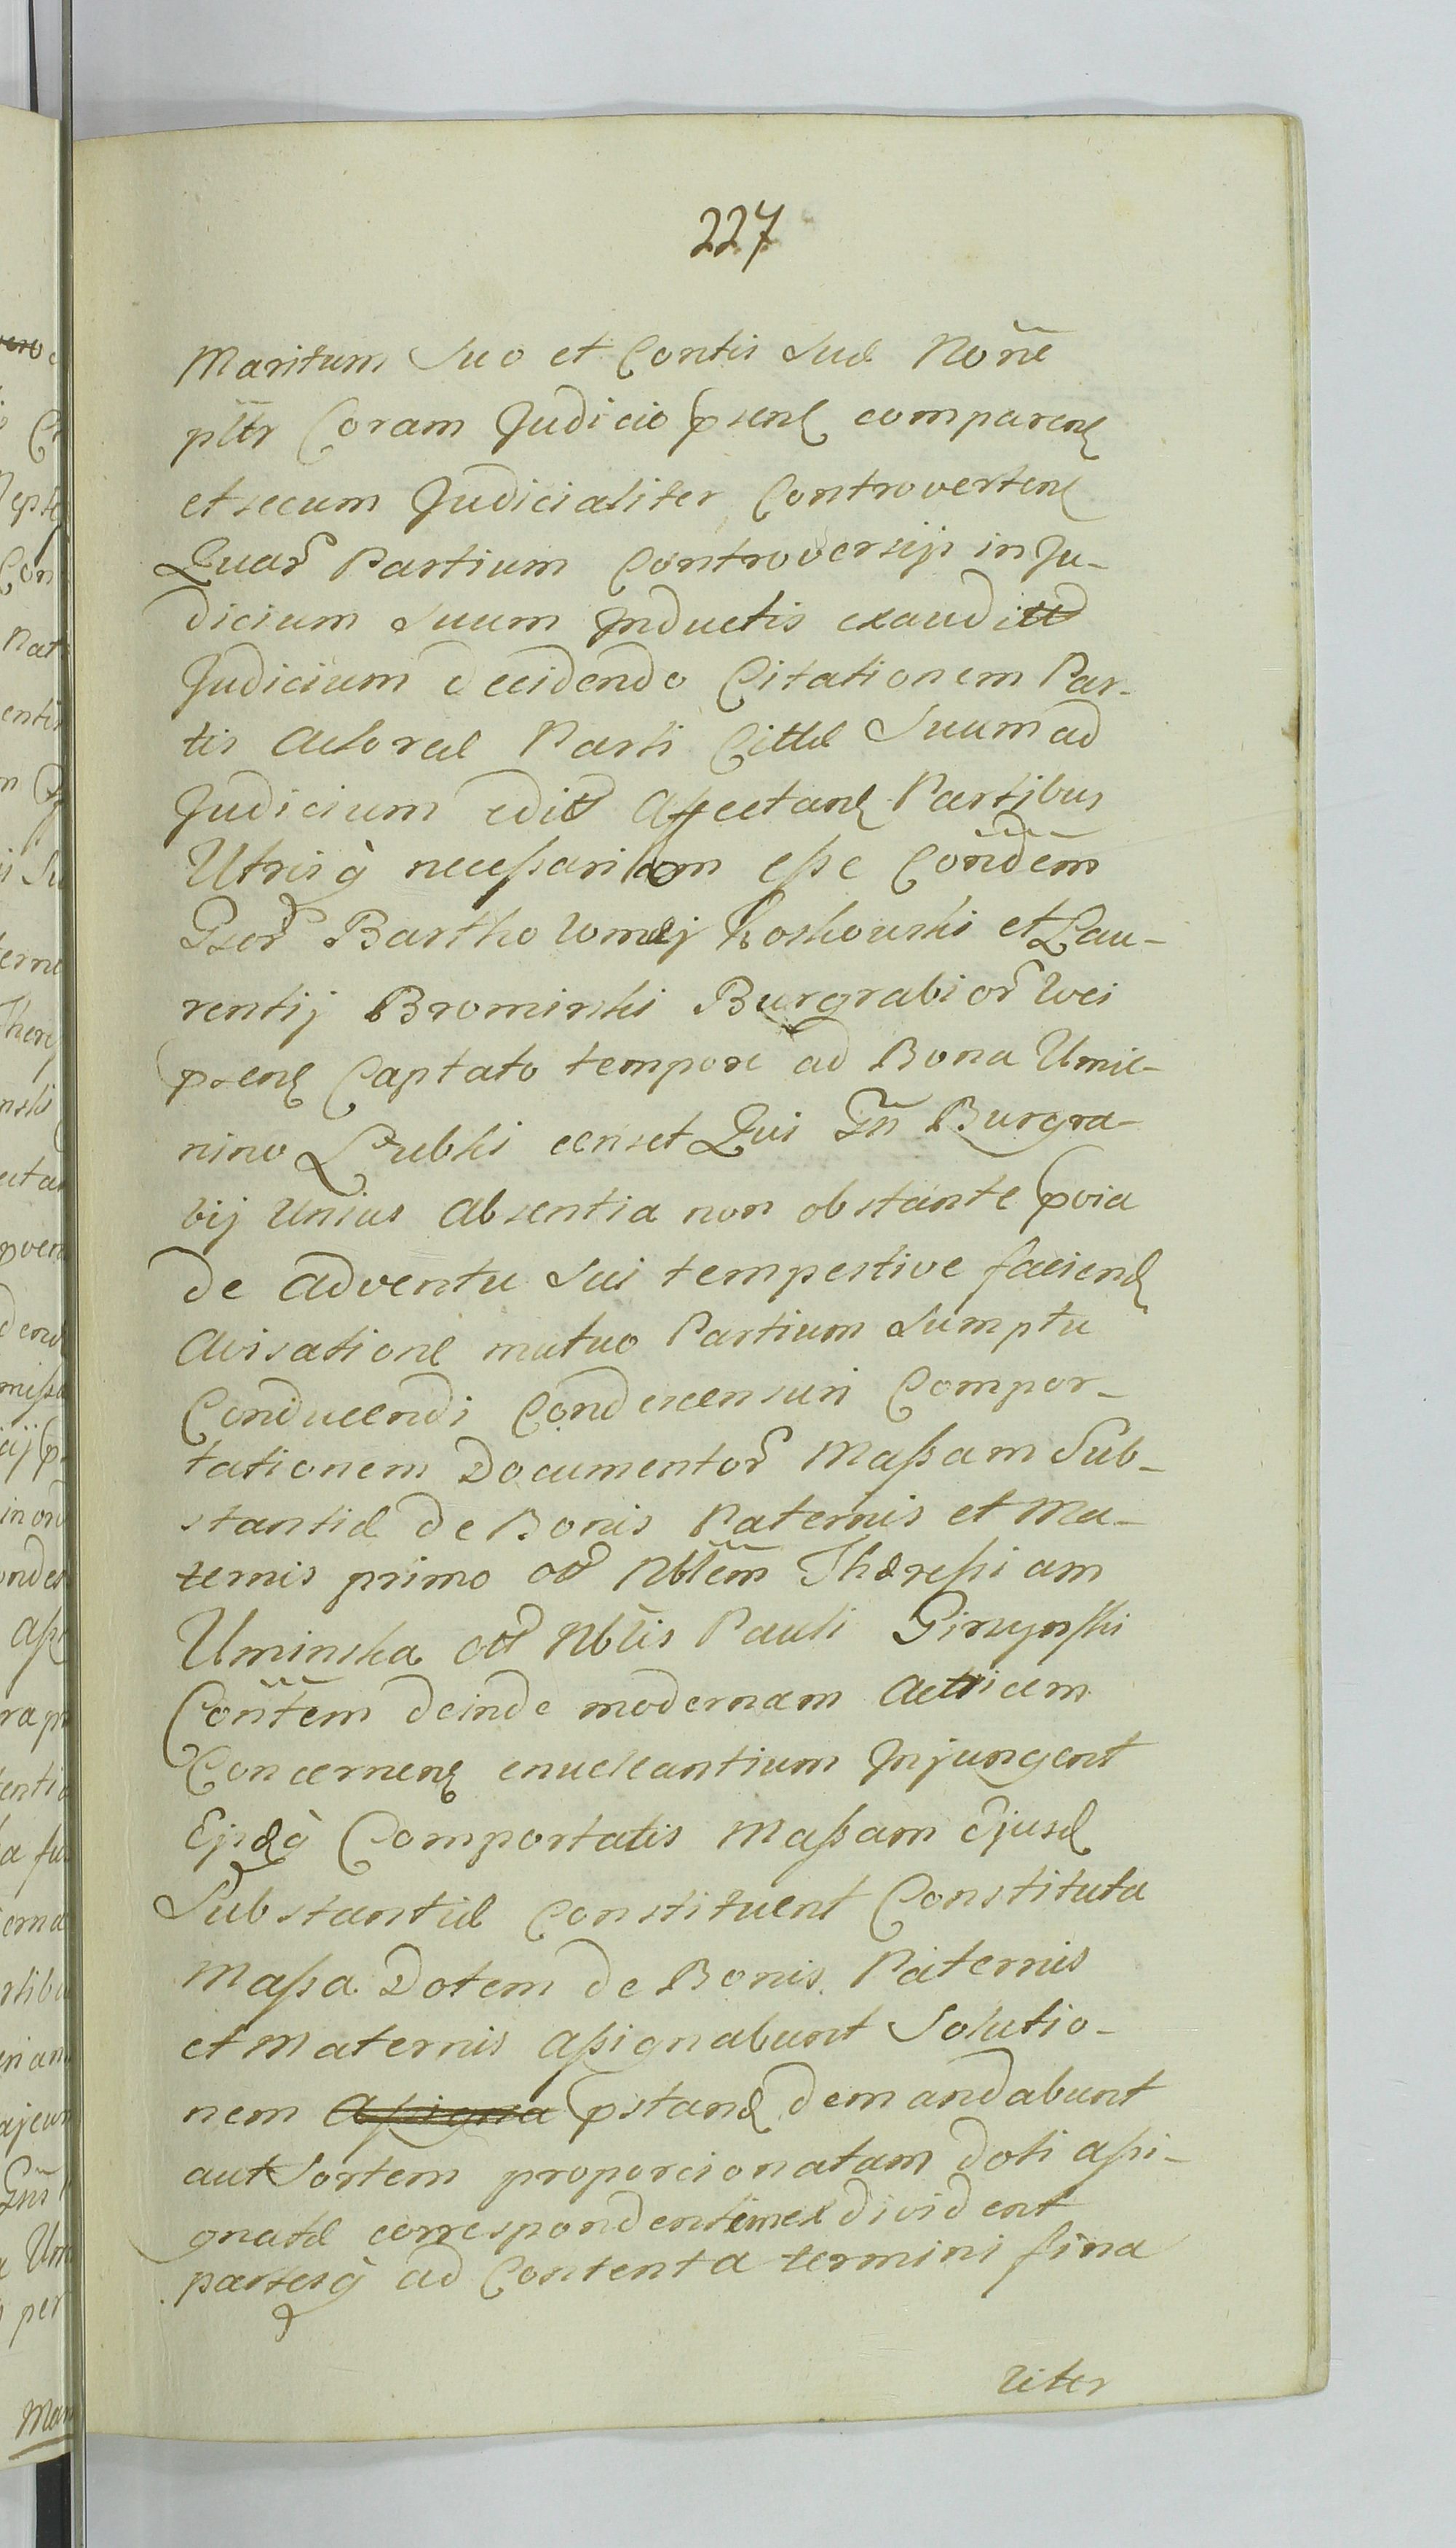 227
Maritum Suo et Contis Suæ Noñe
pltr Coram Judicio psenꝫ comparenꝫ
et secum Judicialiter Controvertenꝫ
Quar̃ Partium Controversijs in Ju-
dicium Suum Inductis exaudit̃
Judicium decidendo Citationem Par-
tis Actoreæ Parti Cittæ Suum ad
Judicium edit̃ Affectanꝫ Partibus
Utrisq̀ necessarium esse Coñdem̃
Gsor̃ Bartholomæj Koskowski et Lau-
rentij Bromirski Burgrabior̃ loci
psenꝫ Captato tempore ad Bona Umie-
nino Łubki censet Qui Gñ Burgra-
bij Unius Absentia non obstante pvia
de Adventu Sui tempestive faciendꝫ
Avisatione mutuo Partium Sumptu
Conducendi Condescensuri Compor-
tationem Documentor̃ Massam Sub-
stantiæ de Bonis Paternis et Ma-
ternis primo od Nblem̃ Theressiam
Uminska od Nblis Pauli Ginzynski
Coñtem̃ deinde modernam Actricem
Concernenꝫ enucleantium Injungent
Ejsdꝫq̀ Comportatis Massam Ejusdꝫ
Substantiæ Constituent Constituta
Massa Dotem de Bonis Paternis
et Maternis assignabunt Solutio-
nem Assigna pstandꝫ demandabunt
aut Sortem proporcionatam doti assi-
gnatæ correspondentem divident
partesq̀ ad Contenta termini fina
liter